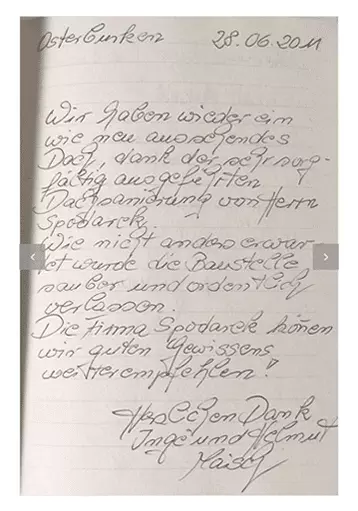 Osterburken 28.06.2011
Wir haben wieder ein
wie neu aussehendes
Dach, dank der sehr sorg-
fältig ausgeführten
Dachsanierung von Herrn
Spodarek.
Wie nicht anders erwar
tet wurde die Baustelle
sauber und ordentlich
verlassen.
Die Firma Spodarek können
wir guten Gewissens
weiterempfehlen!
Herzlichen Dank
Inge und Helmut
Maisch